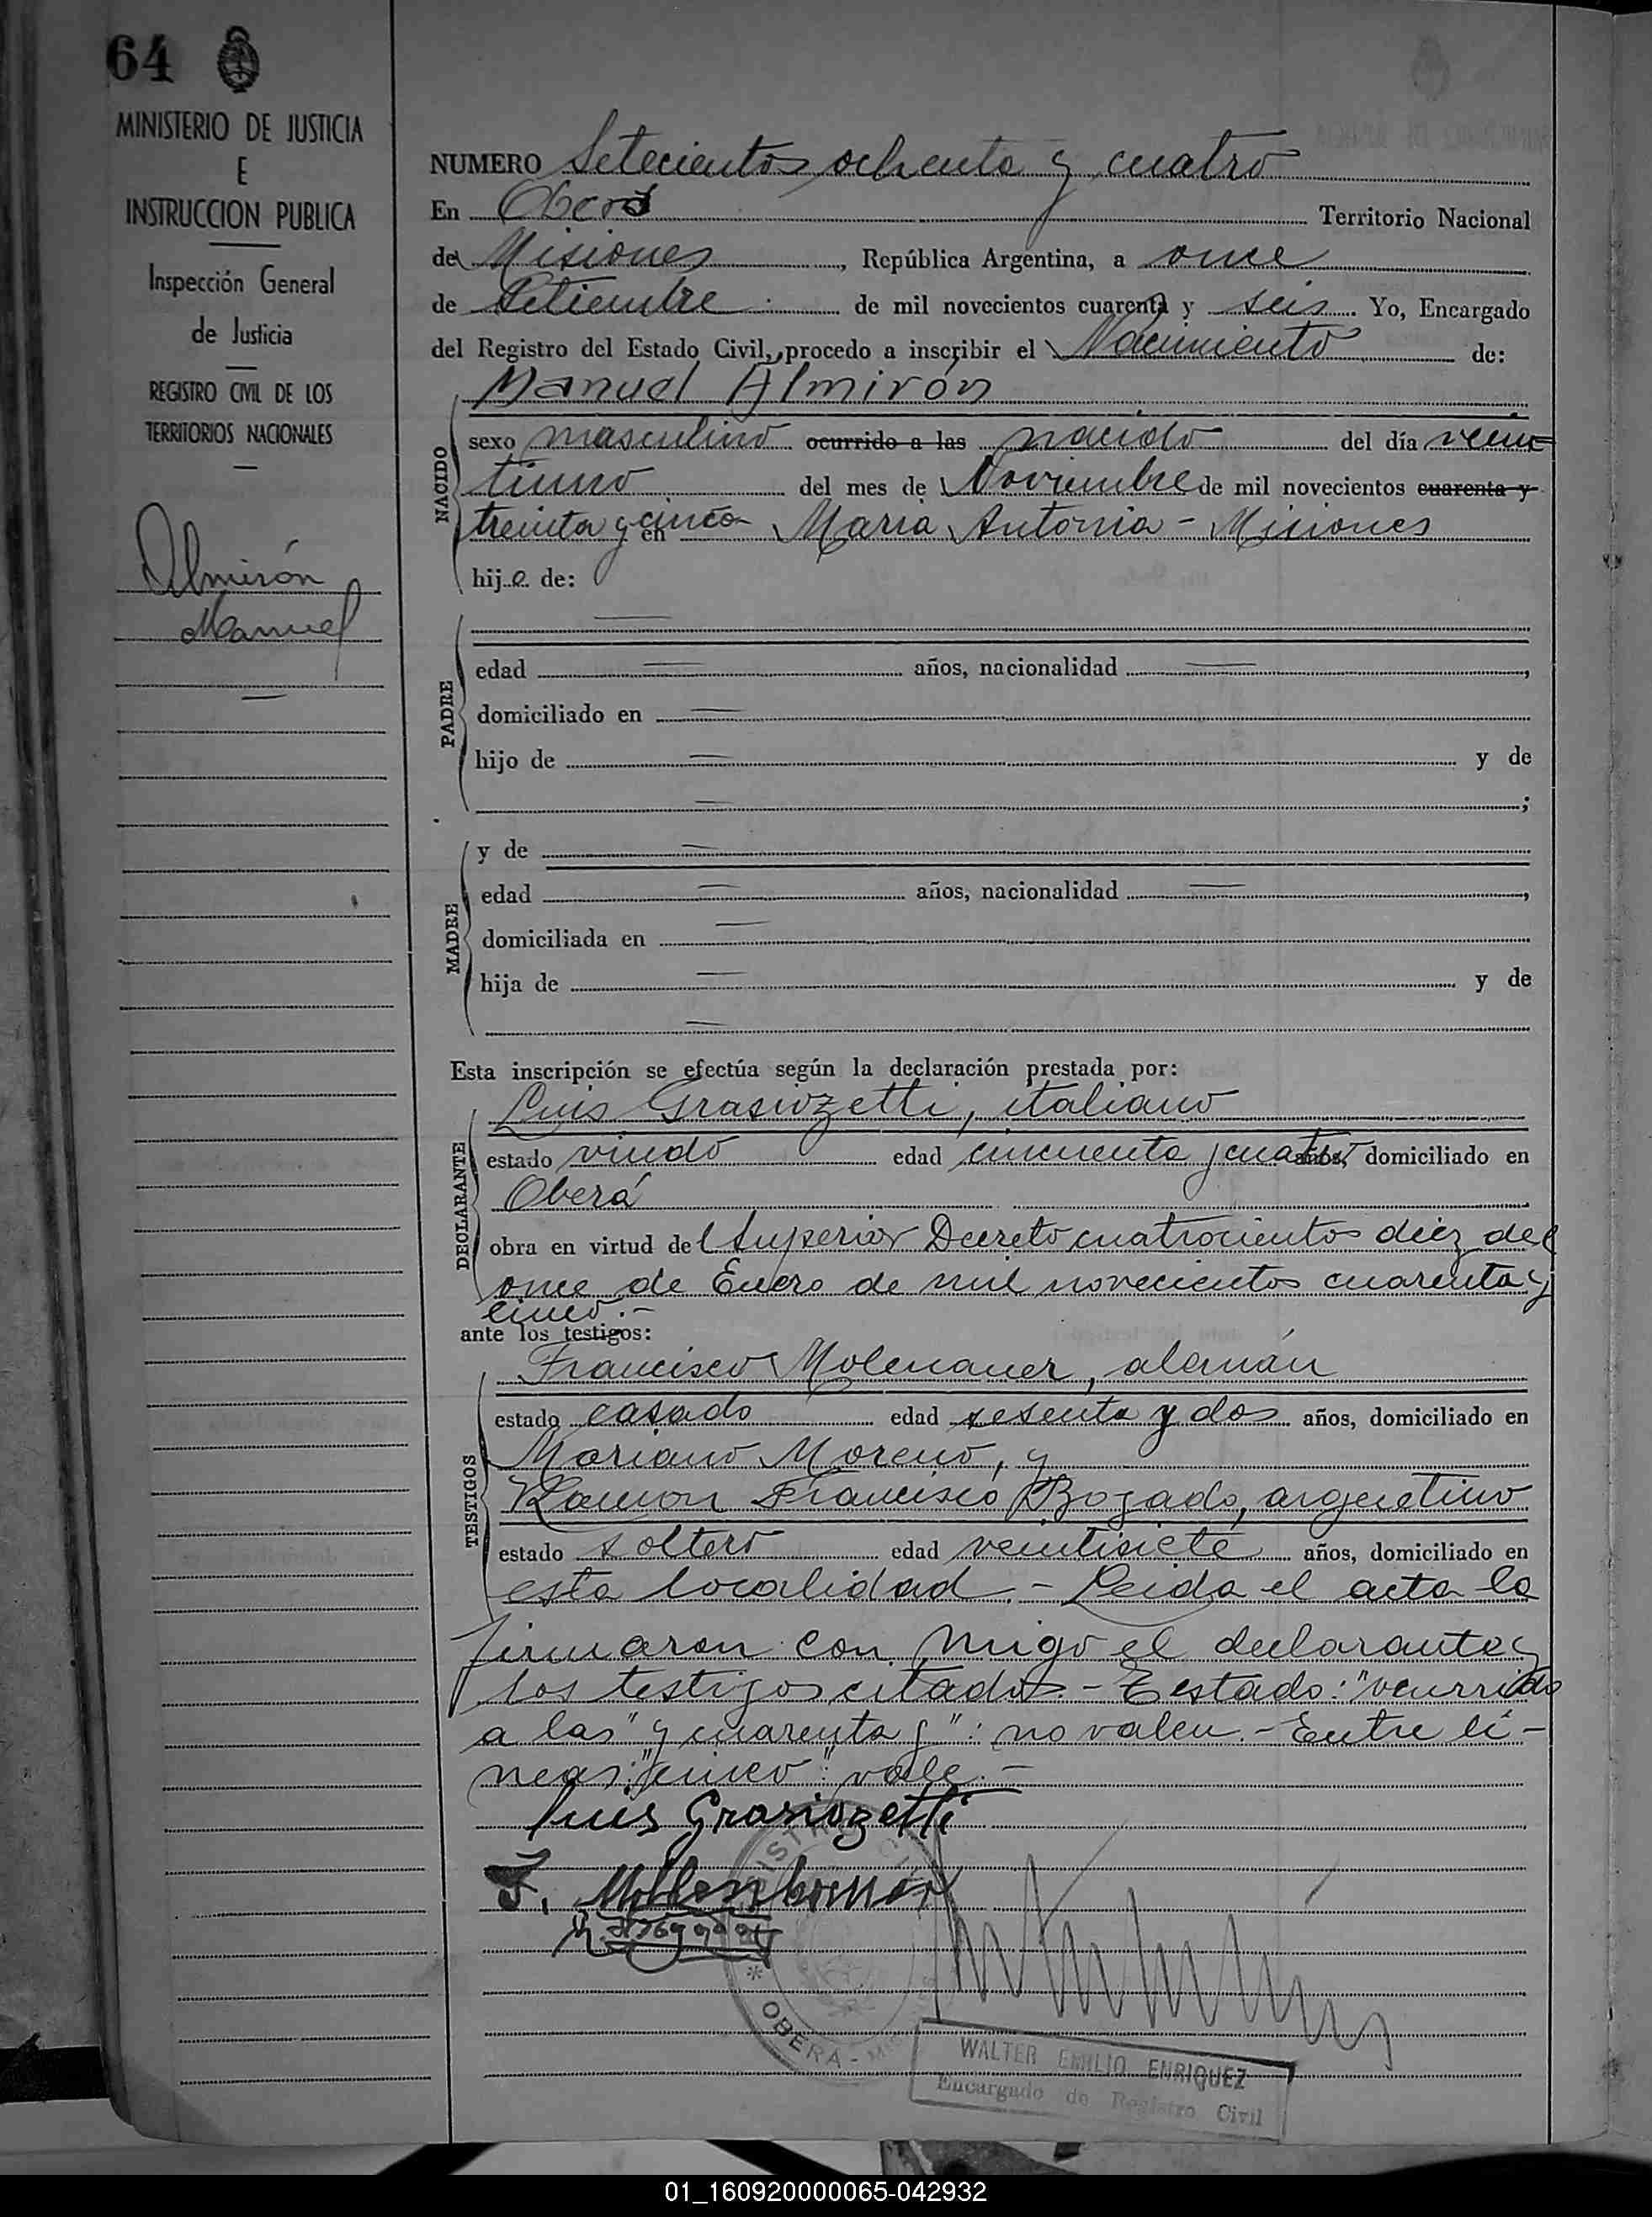 64
MINISTERIO DE JUSTICIA
E
INSTRUCCION PUBLICA
Inspección General
de Justicia
REGISTRO CIVIL DE LOS
TERRITORIOS NACIONALES
Almirón
Manuel
NUMERO Setecientos ochenta y cuatro
En Oberá Territorio Nacional
de Misiones, República Argentina, a once
de Setiembre de mil novecientos cuarenta y seis. Yo, Encargado
del Registro del Estado Civil, procedo a inscribir el Nacimiento de:
NACIDO
Manuel Almirón
sexo masculino ocurrido a las nacido del día vein
tiuno del mes de Noviembre de mil novecientos cuarenta y
treinta y cinco en Maria Antonia - Misiones
hijo de:
PADRE
edad años, nacionalidad ,
domiciliado en
hijo de y de
;
MADRE
y de
edad años, nacionalidad ,
domiciliada en
hija de y de
Esta inscripción se efectúa según la declaración prestada por:
DECLARANTE
Luis Grasiozetti, italiano
estado viudo edad cincuenta y cuatro años, domiciliado en
Oberá
obra en virtud del Superior Decreto cuatrocientos diez del
once de Enero de mil novecientos cuarenta y
cinco.-
ante los testigos:
TESTIGOS
Francisco Molenauer, alemán
estado casado edad sesenta y dos años, domiciliado en
Mariano Moreno, y
Ramon Francisco Bogado, argentino
estado soltero edad veintisiete años, domiciliado en
esta localidad.- Leida el acta la
firmaron con migo el declarante y
los testigos citados.- Testado: "ocurrido
a las" y cuarenta y": no valen.- Entre li-
neas: "cinco": vale.-
Luis Grasiozetti
F.
REGISTRO CIVIL
* OBERA - MIS
WALTER EMILIO ENRIQUEZ
Encargado de Registro Civil
01_160920000065-042932